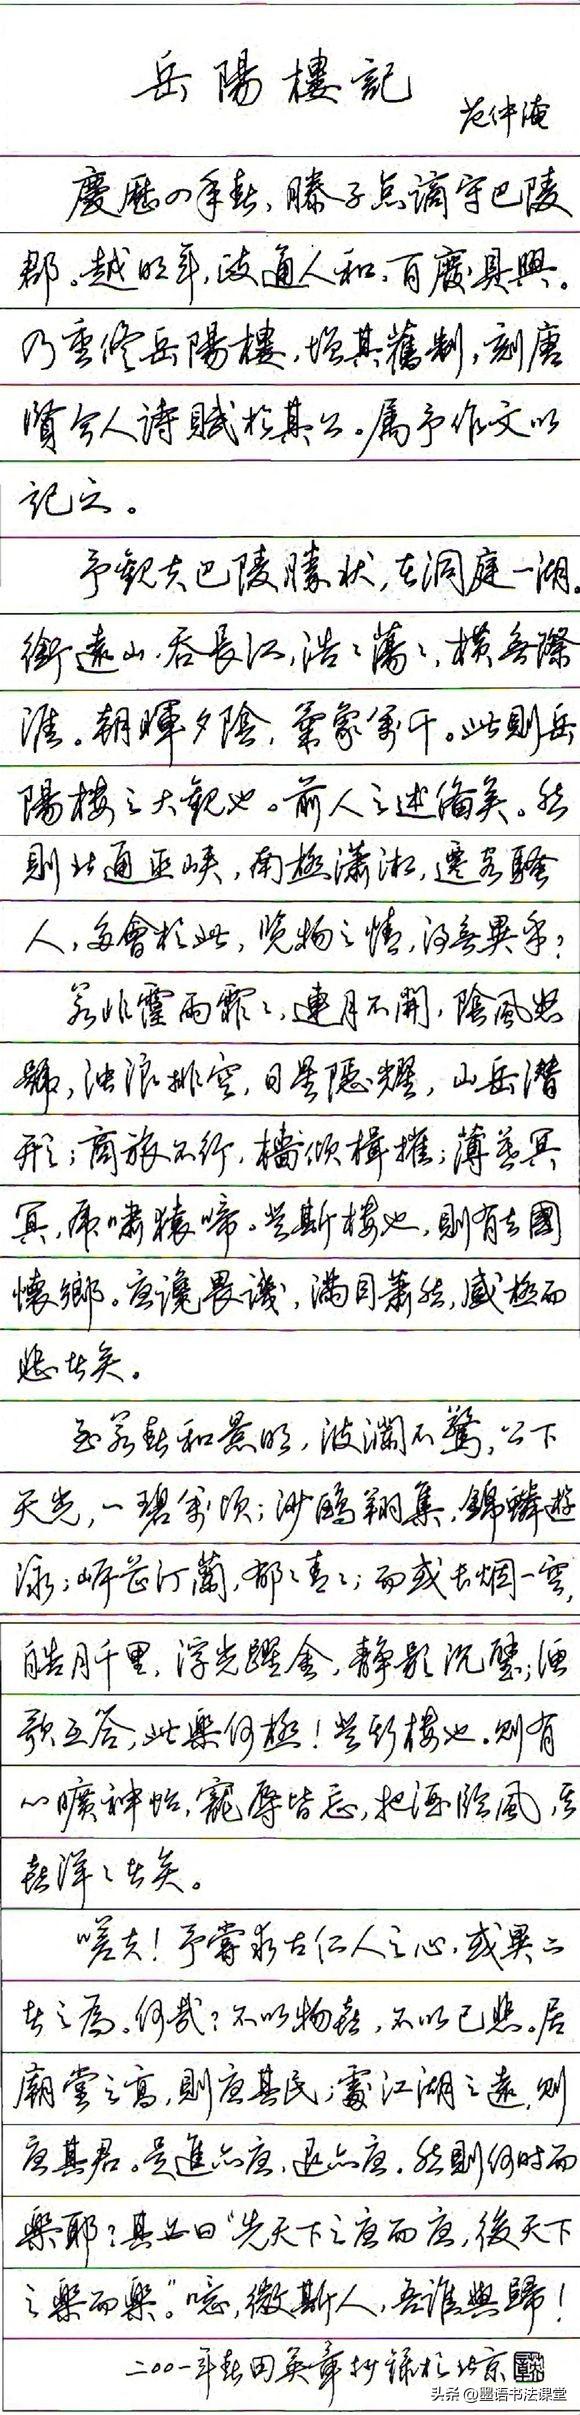 岳陽樓記
范仲淹
慶歷四年春，滕子京謫守巴陵
郡。越明年，政通人和，百廢具興。
乃重修岳陽樓，增其舊制，刻唐
賢今人詩賦於其上。属予作文以
記之。
予觀夫巴陵勝狀，在洞庭一湖。
銜遠山，吞長江，浩〻蕩〻，橫無際
涯。朝暉夕陰，氣象萬千。此則岳
陽樓之大觀也。前人之述備矣。然
則北通巫峽，南極瀟湘，遷客騷
人，多會於此，覽物之情，得無異乎？
若非霪雨霏〻，連月不開，陰風怒
號，浊浪排空，日星隱耀，山岳潛
形；商旅不行，檣傾楫摧；薄暮冥
冥，虎嘯猿啼。登斯樓也，則有去國
懷鄉。憂讒畏譏，滿目蕭然，感極而
悲者矣。
至若春和景明，波瀾不驚，上下
天光，一碧萬頃；沙鷗翔集，錦鱗遊
泳；岸芷汀蘭，郁〻青〻；而或長烟一空，
皓月千里，浮光躍金，静影沉璧；漁
歌互答，此樂何極！登斯樓也，則有
心曠神怡，寵辱皆忘，把酒臨風，其
喜洋〻者矣。
嗟夫！予嘗求古仁人之心，或異二
者之為。何哉？不以物喜，不以己悲。居
廟堂之高，則憂其民；處江湖之遠，則
憂其君。是進亦憂，退亦憂。然則何时而
樂耶？其必曰“先天下之憂而憂，後天下
之樂而樂。”噫，微斯人，吾誰與歸！
二〇〇一年春田英章抄錄於北京
头条 @墨语书法课堂